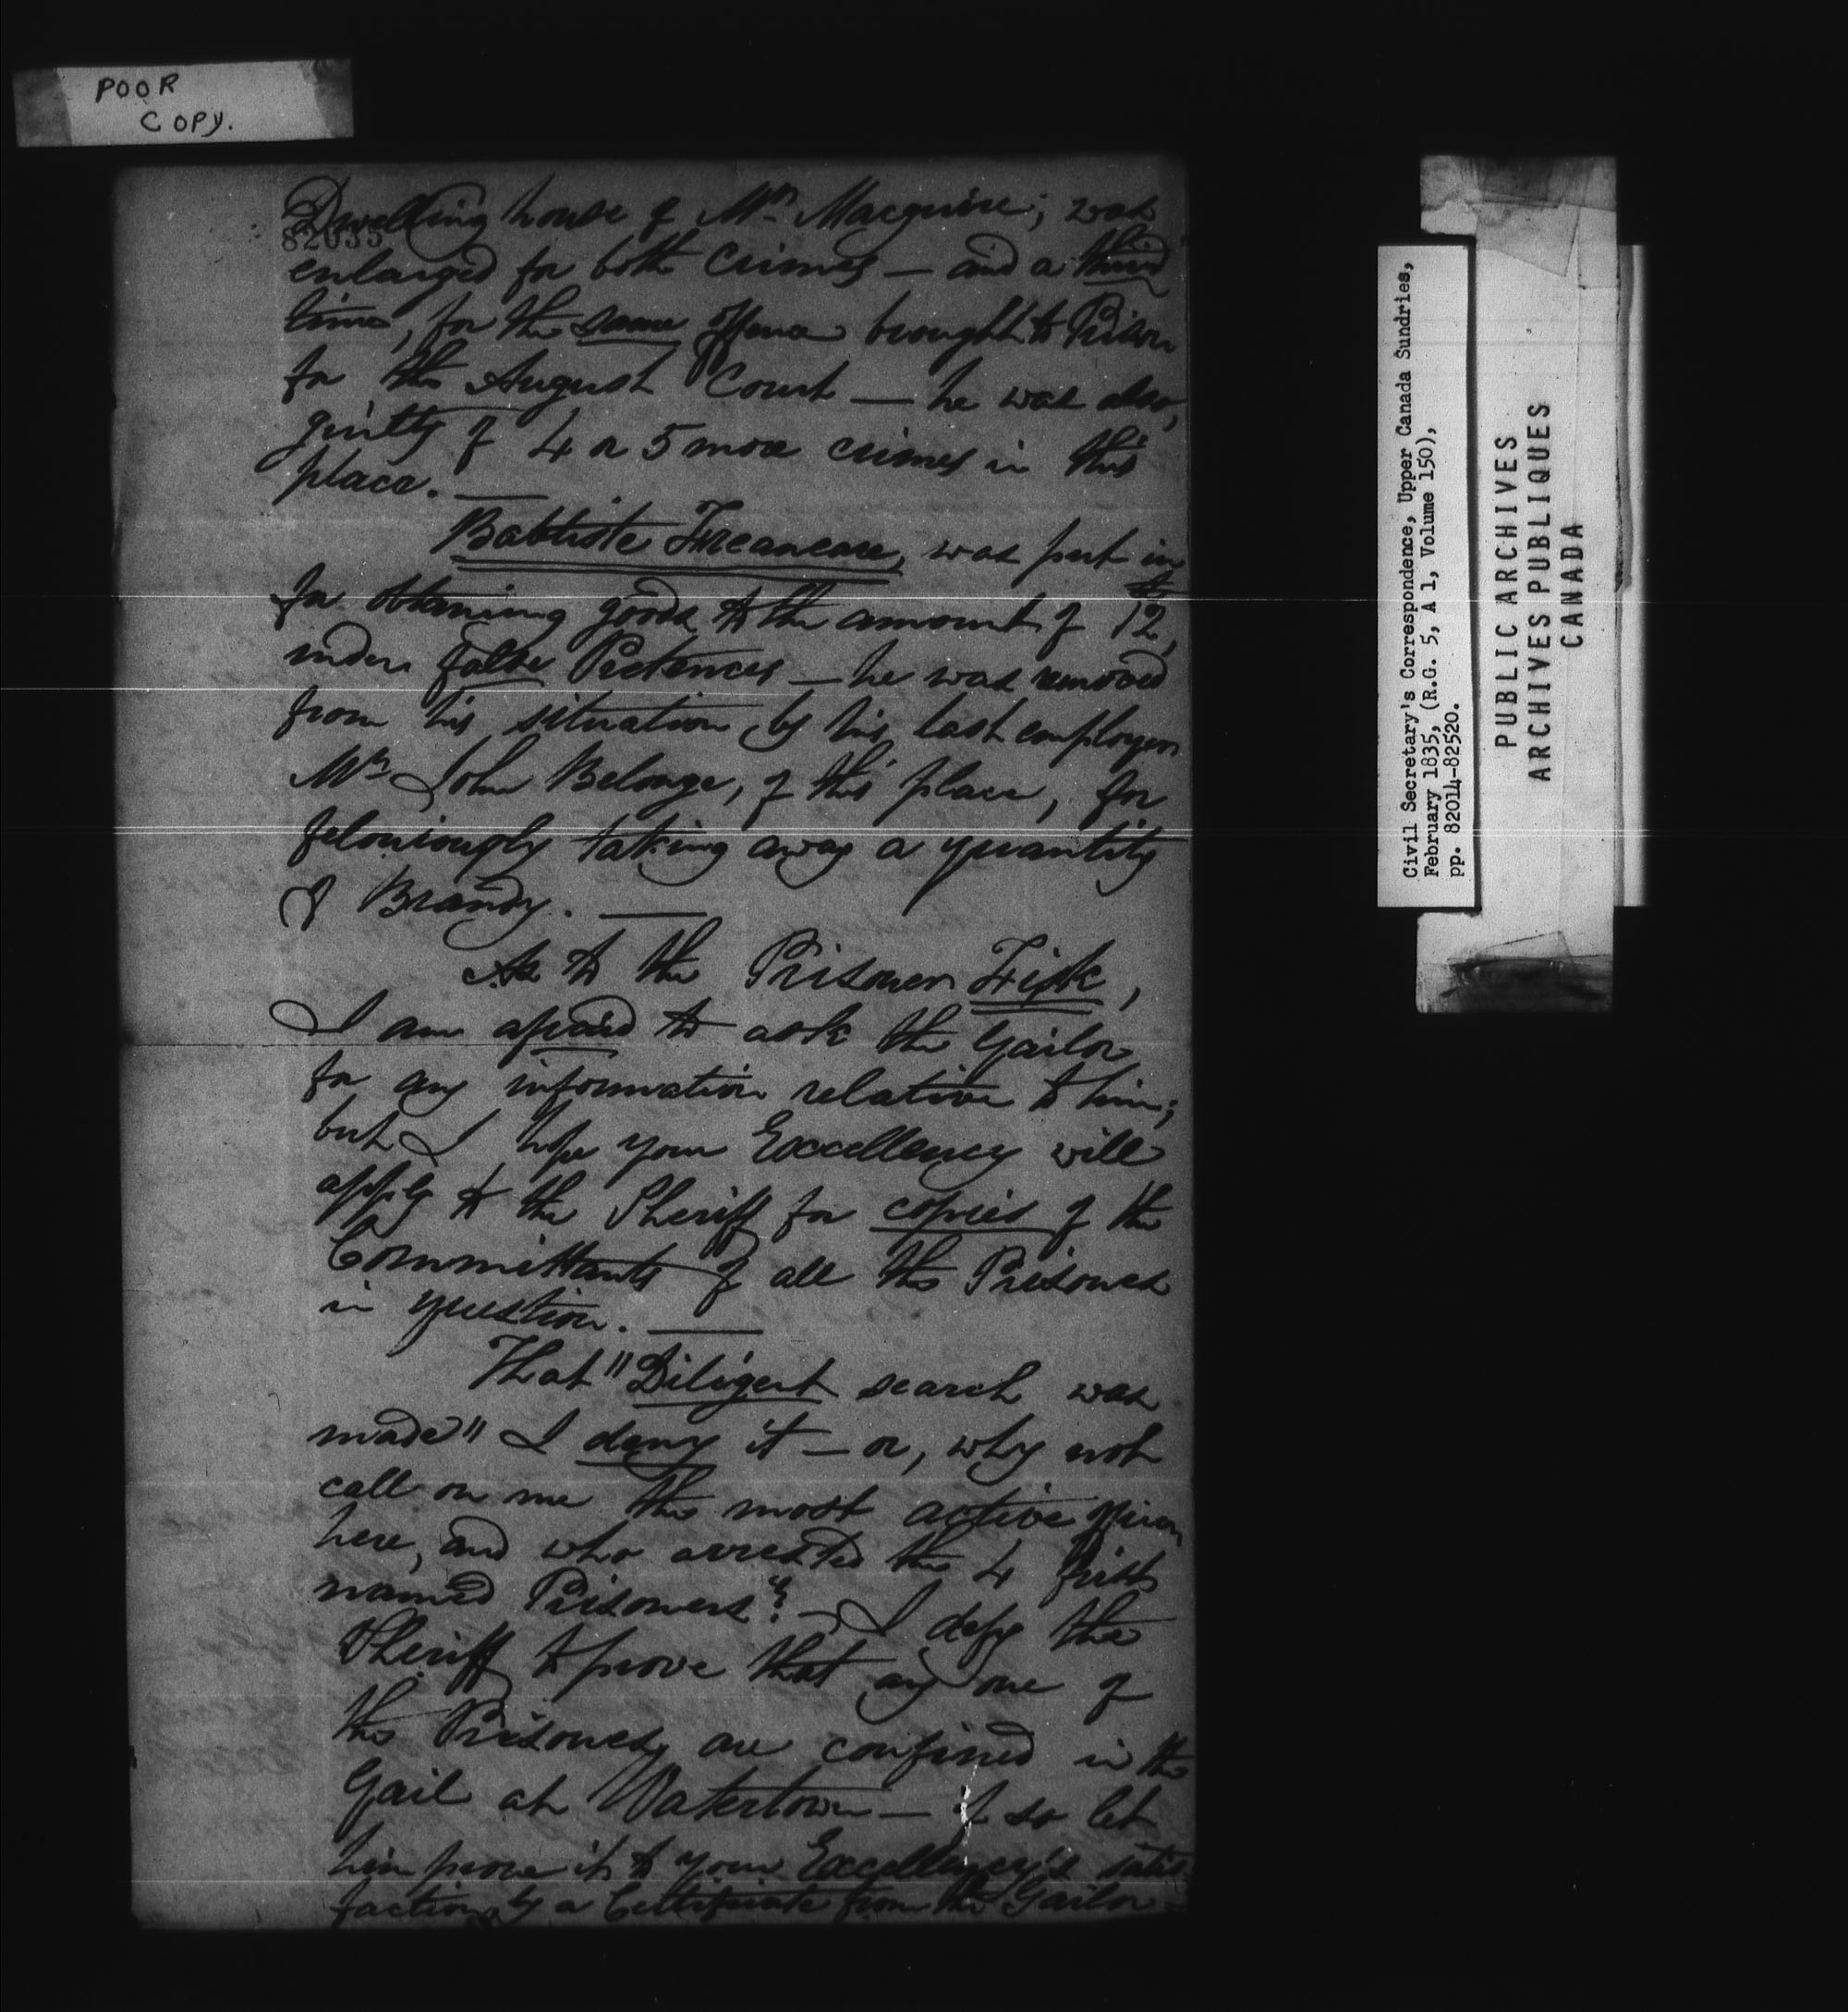 POOR
COPY.
Dwelling house of Mr Macguire; was
82035
enlarged for both crimes — and a third
time, for the same offence brought to Prison
for the August Court — he was also,
guilty of 4 or 5 more crimes in this
place. —
Babtiste was put in
for obtaining goods to the amount of 12,
under false Pretences — he was removed
from his situation by his last employer
Mr John Belonge, of this place, for
feloniously taking away a quantity
of Brandy. —
As to the Prisoner Fisk,
I am afraid to ask the Gailor
for any information relative to him;
but I hope your Excellency will
apply to the Sheriff for copies of the
Committants of all the Prisoners
in question. —
That "Diligent search was
made" I deny it — or, why not
call on me the most active officer
here, and who arrested the 4 first
named Prisoners? — I defy the
Sheriff to prove that any one of
the Prisoners are confined in the
Gail at Watertown — if so let
him prove it to your Excellency's satis
faction, by a Certificate from the Gailor
Civil Secretary's Correspondence, Upper Canada Sundries,
February 1835, (R.G. 5, A 1, Volume 150),
pp. 82014-82520.
PUBLIC ARCHIVES
ARCHIVES PUBLIQUES
CANADA